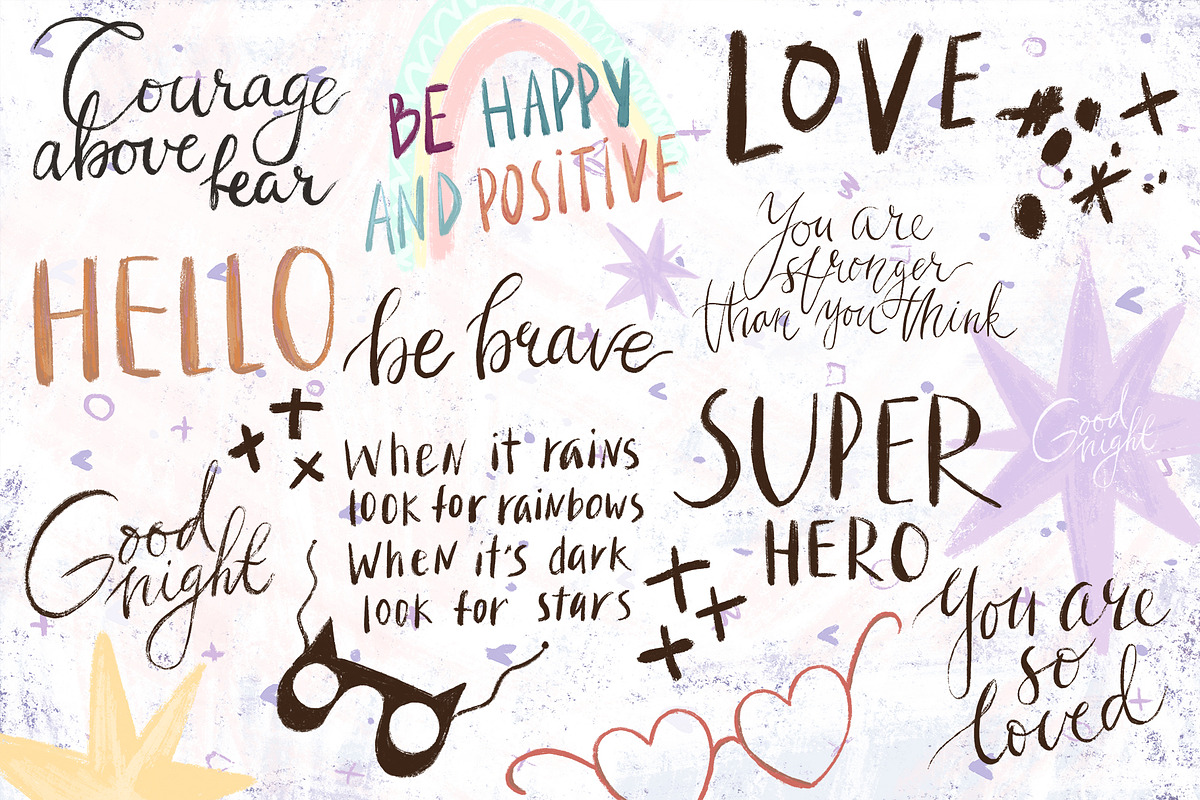 Courage
above fear
BE HAPPY
AND POSITIVE
LOVE
You are
stronger
than you think
HELLO
be brave
Good
night
SUPER
HERO
When it rains
look for rainbows
When it's dark
look for stars
Good
night
You are
so
loved